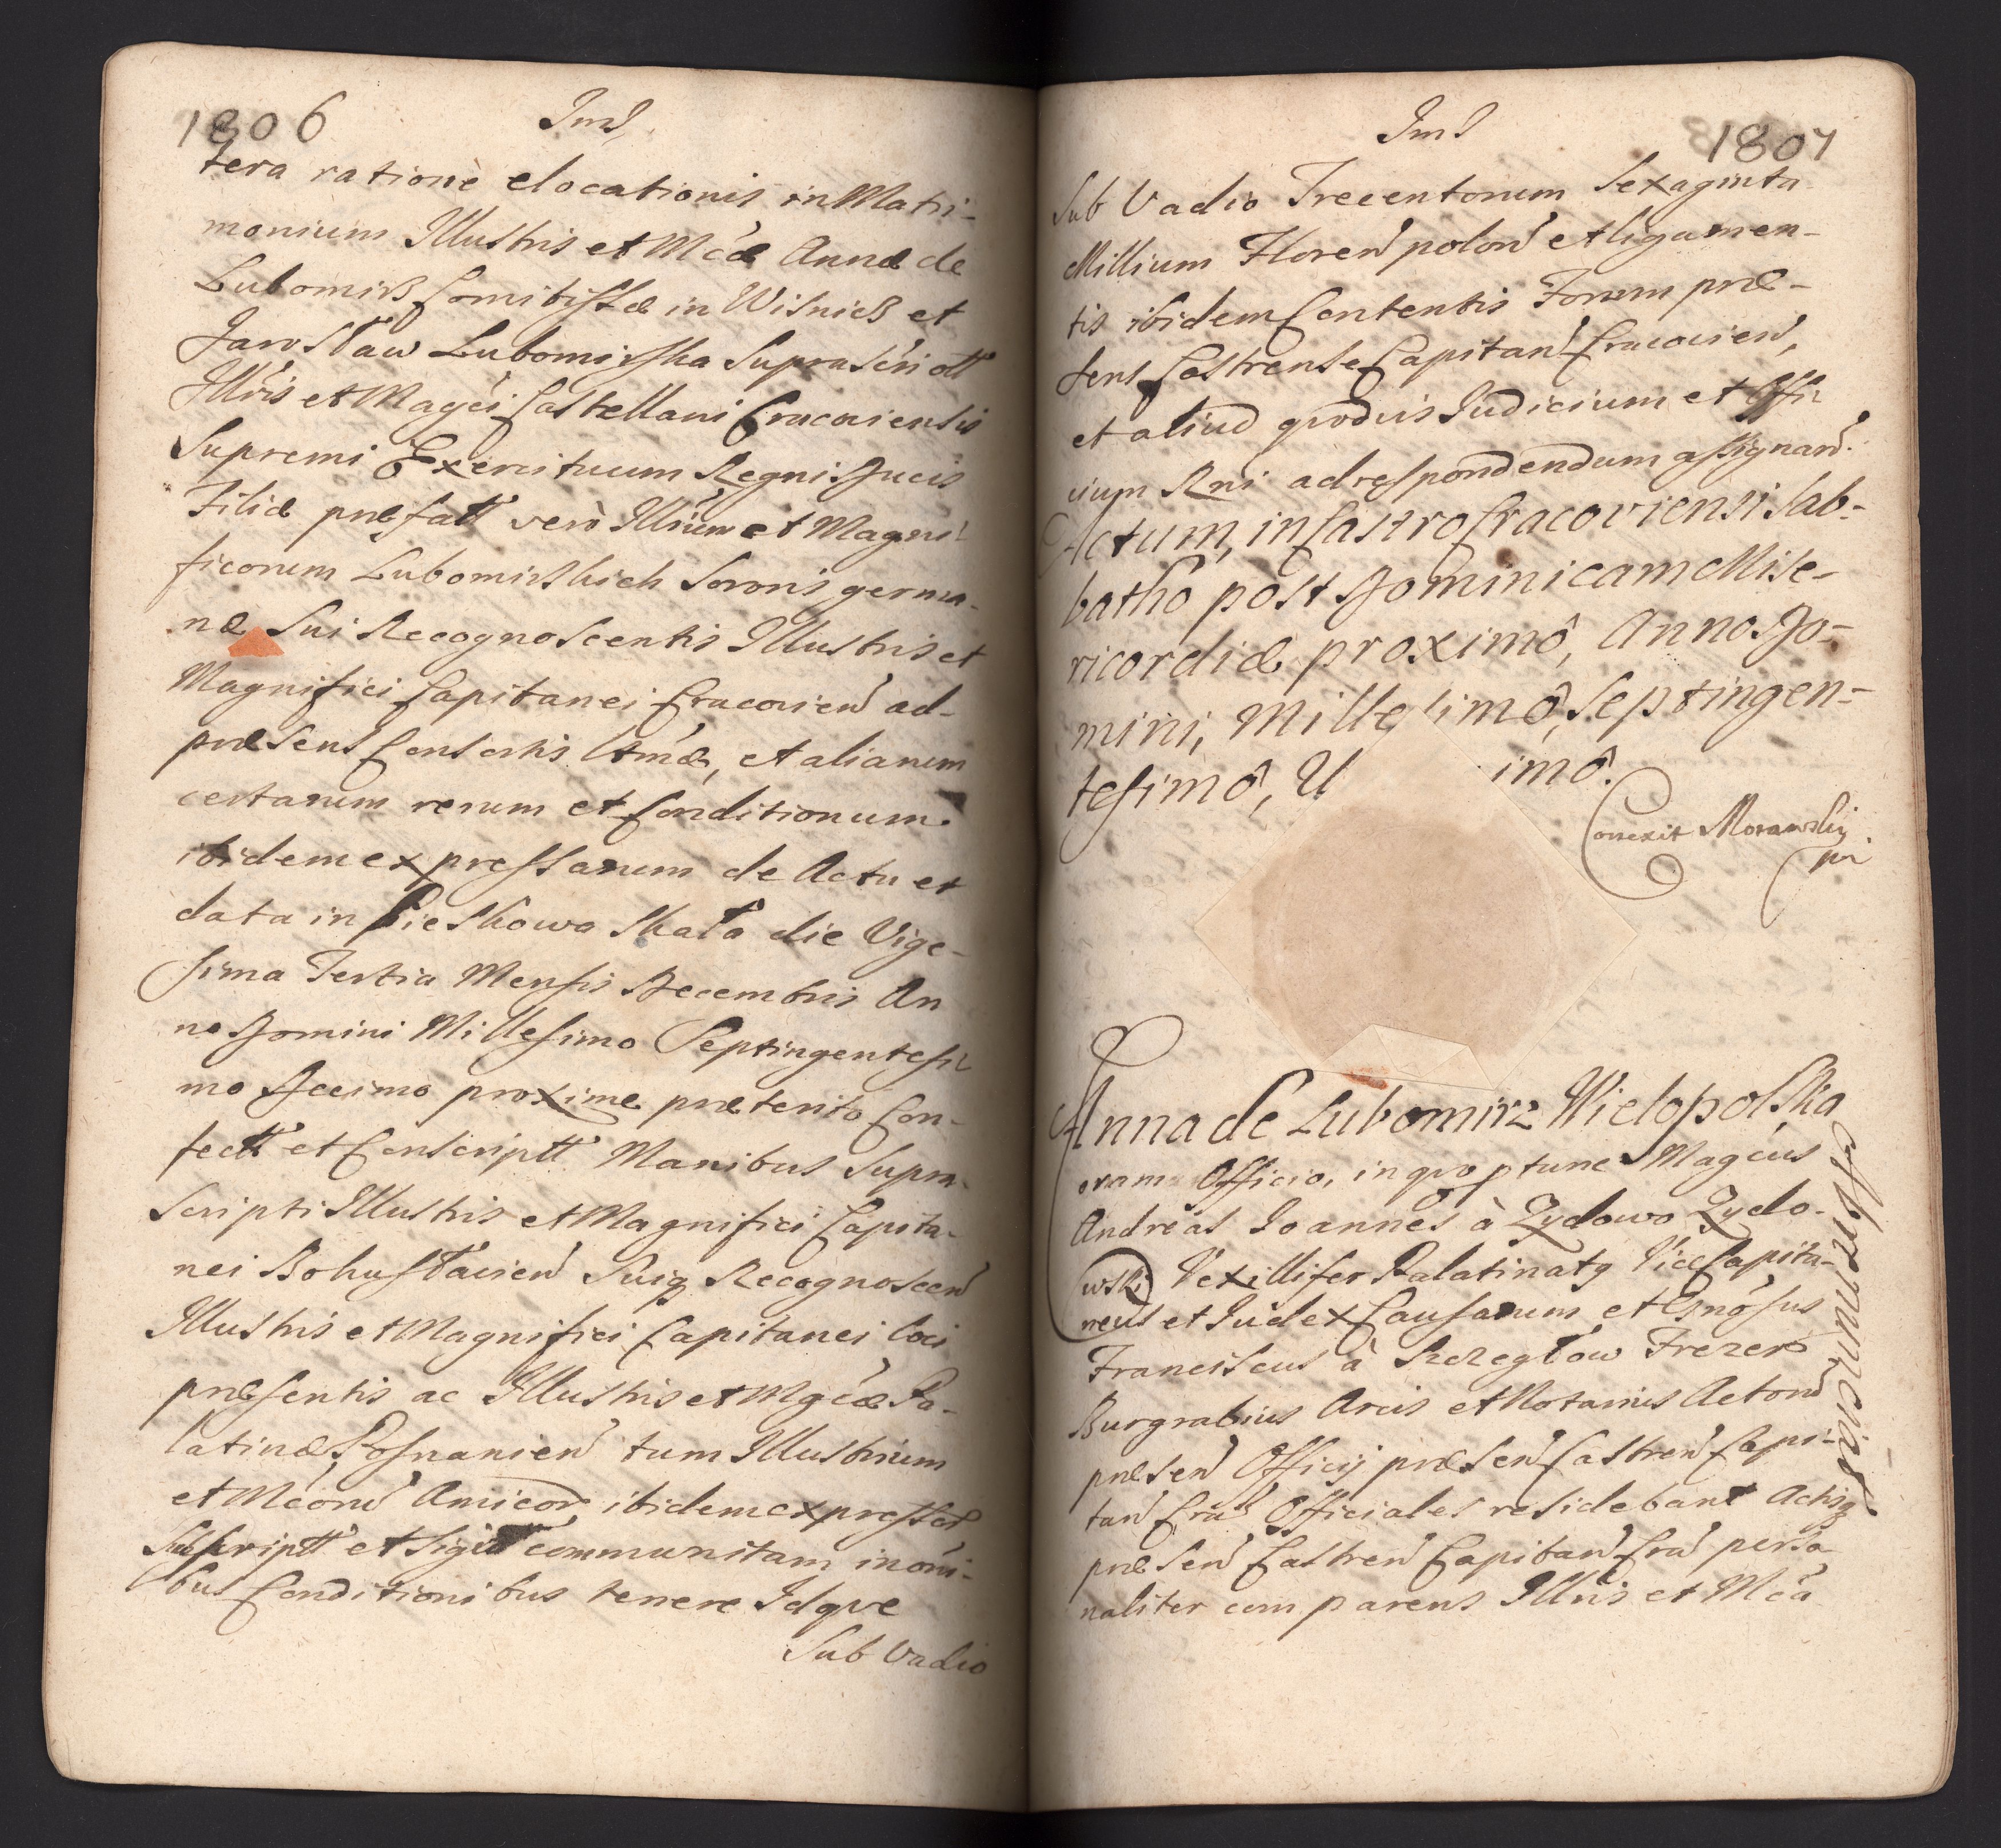 1806
Ind
tera ratione elocationis in Matri-
monium Illustris et Mcæ Annæ de
Lubomirz Comitissæ in Wisnicz et
Jarosław Lubomirska Suprascri ott
Illris et Magci Castellani Cracoviensis
Supremi Exercituum Regni Ducis
Filiæ præfatt verò Illrium et Magni-
ficorum Lubomirskich Sororis germa-
næ Sui Recognoscentis Illustris et
Magnifici Capitanei Cracovien ad-
præsens Consortis Amæ, et aliarum
certarum rerum et Conditionum
ibidem expressarum de Actu et
data in Pieskowa Skała die Vige-
sima Tertia Mensis Decembris An
no Domini Millesimo Septingentesi-
mo Decimo proxime præterito Con-
fectt et Conscriptt Manibus Supra-
Scripti Illustris et Magnifici Capita-
nei Bohusłavien Suiq Recognoscen
Illustris et Magnifici Capitanei loci
præsentis ac Illustris et Mgcæ Pa-
latinæ Posnanien tum Illustrium
et Mcorum Amicor ibidem expressor
Subscriptt et Sigill communitam in omi-
bus Conditionibus tenere Idqve
Sub Vadio
Ind
1807
Sub Vadio Trecentorum Sexaginta
Millium Floren polon et ligamen-
tis ibidem Contentis Forum præ-
sens Castrense Capitan Cracovien,
et aliud qvodvis Iudicium et Offi-
cium Rni ad respondendum assignan.
Actum, in Castro Cracoviensi Sab-
batho post Dominicam Mise-
ricordiæ proximô, Anno Do-
mini, Millesimô, Septingen-
tesimô, U imô.
Correxit Morawsky
pi
Anna de Lubomirz Wielopolska
oram Officio, in qvo ptunc Magcus
Andreas Ioannes à Zydowo Zydo-
wski Vexillifer Palatinatg ViceCapita-
neus et Iudex Causarum et Gnosus
Franciscus à Szczegłow Frezer
Burgrabius Arcis et Notarius Actorum
præsen Officij præsen Castren Capi-
tan Cra Officiales residebant Actisq
præsen Castren Capitan Cra perso
naliter comparens Illris et Mca